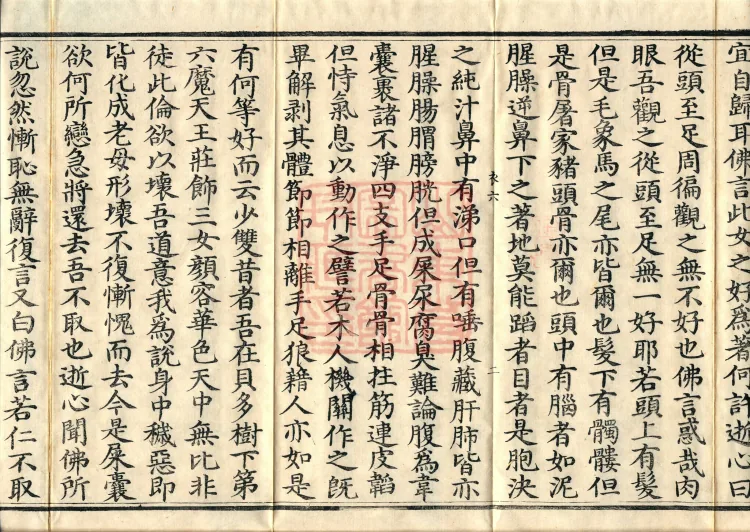 宜自歸耳佛言此女之好為著何許逝心曰
從頭至足周徧觀之無不好也佛言惑哉肉
眼吾觀之從頭至足無一好耶若頭上有髮
但是毛象馬之尾亦皆爾也髮下有髑髏但
是骨屠家豬頭骨亦爾也頭中有腦者如泥
腥臊逆鼻下之著地莫能蹈者目者是胞決
之純汁鼻中有涕口但有唾腹藏肝肺皆亦
腥臊腸胃膀胱但成屎尿腐臭難論腹為韋
囊裹諸不淨四支手足骨骨相拄筋連皮韜
但恃氣息以動作之譬若木人機關作之既
畢解剥其體節節相離手足狼藉人亦如是
有何等好而云少雙昔者吾在貝多樹下第
六魔天王莊飾三女顏容華色天中無比非
徒此倫欲以壞吾道意我為說身中穢惡即
皆化成老母形壞不復慚愧而去今是屎囊
欲何所戀急將還去吾不取也逝心聞佛所
說忽然慚恥無辭復言又白佛言若仁不取
衣六
二